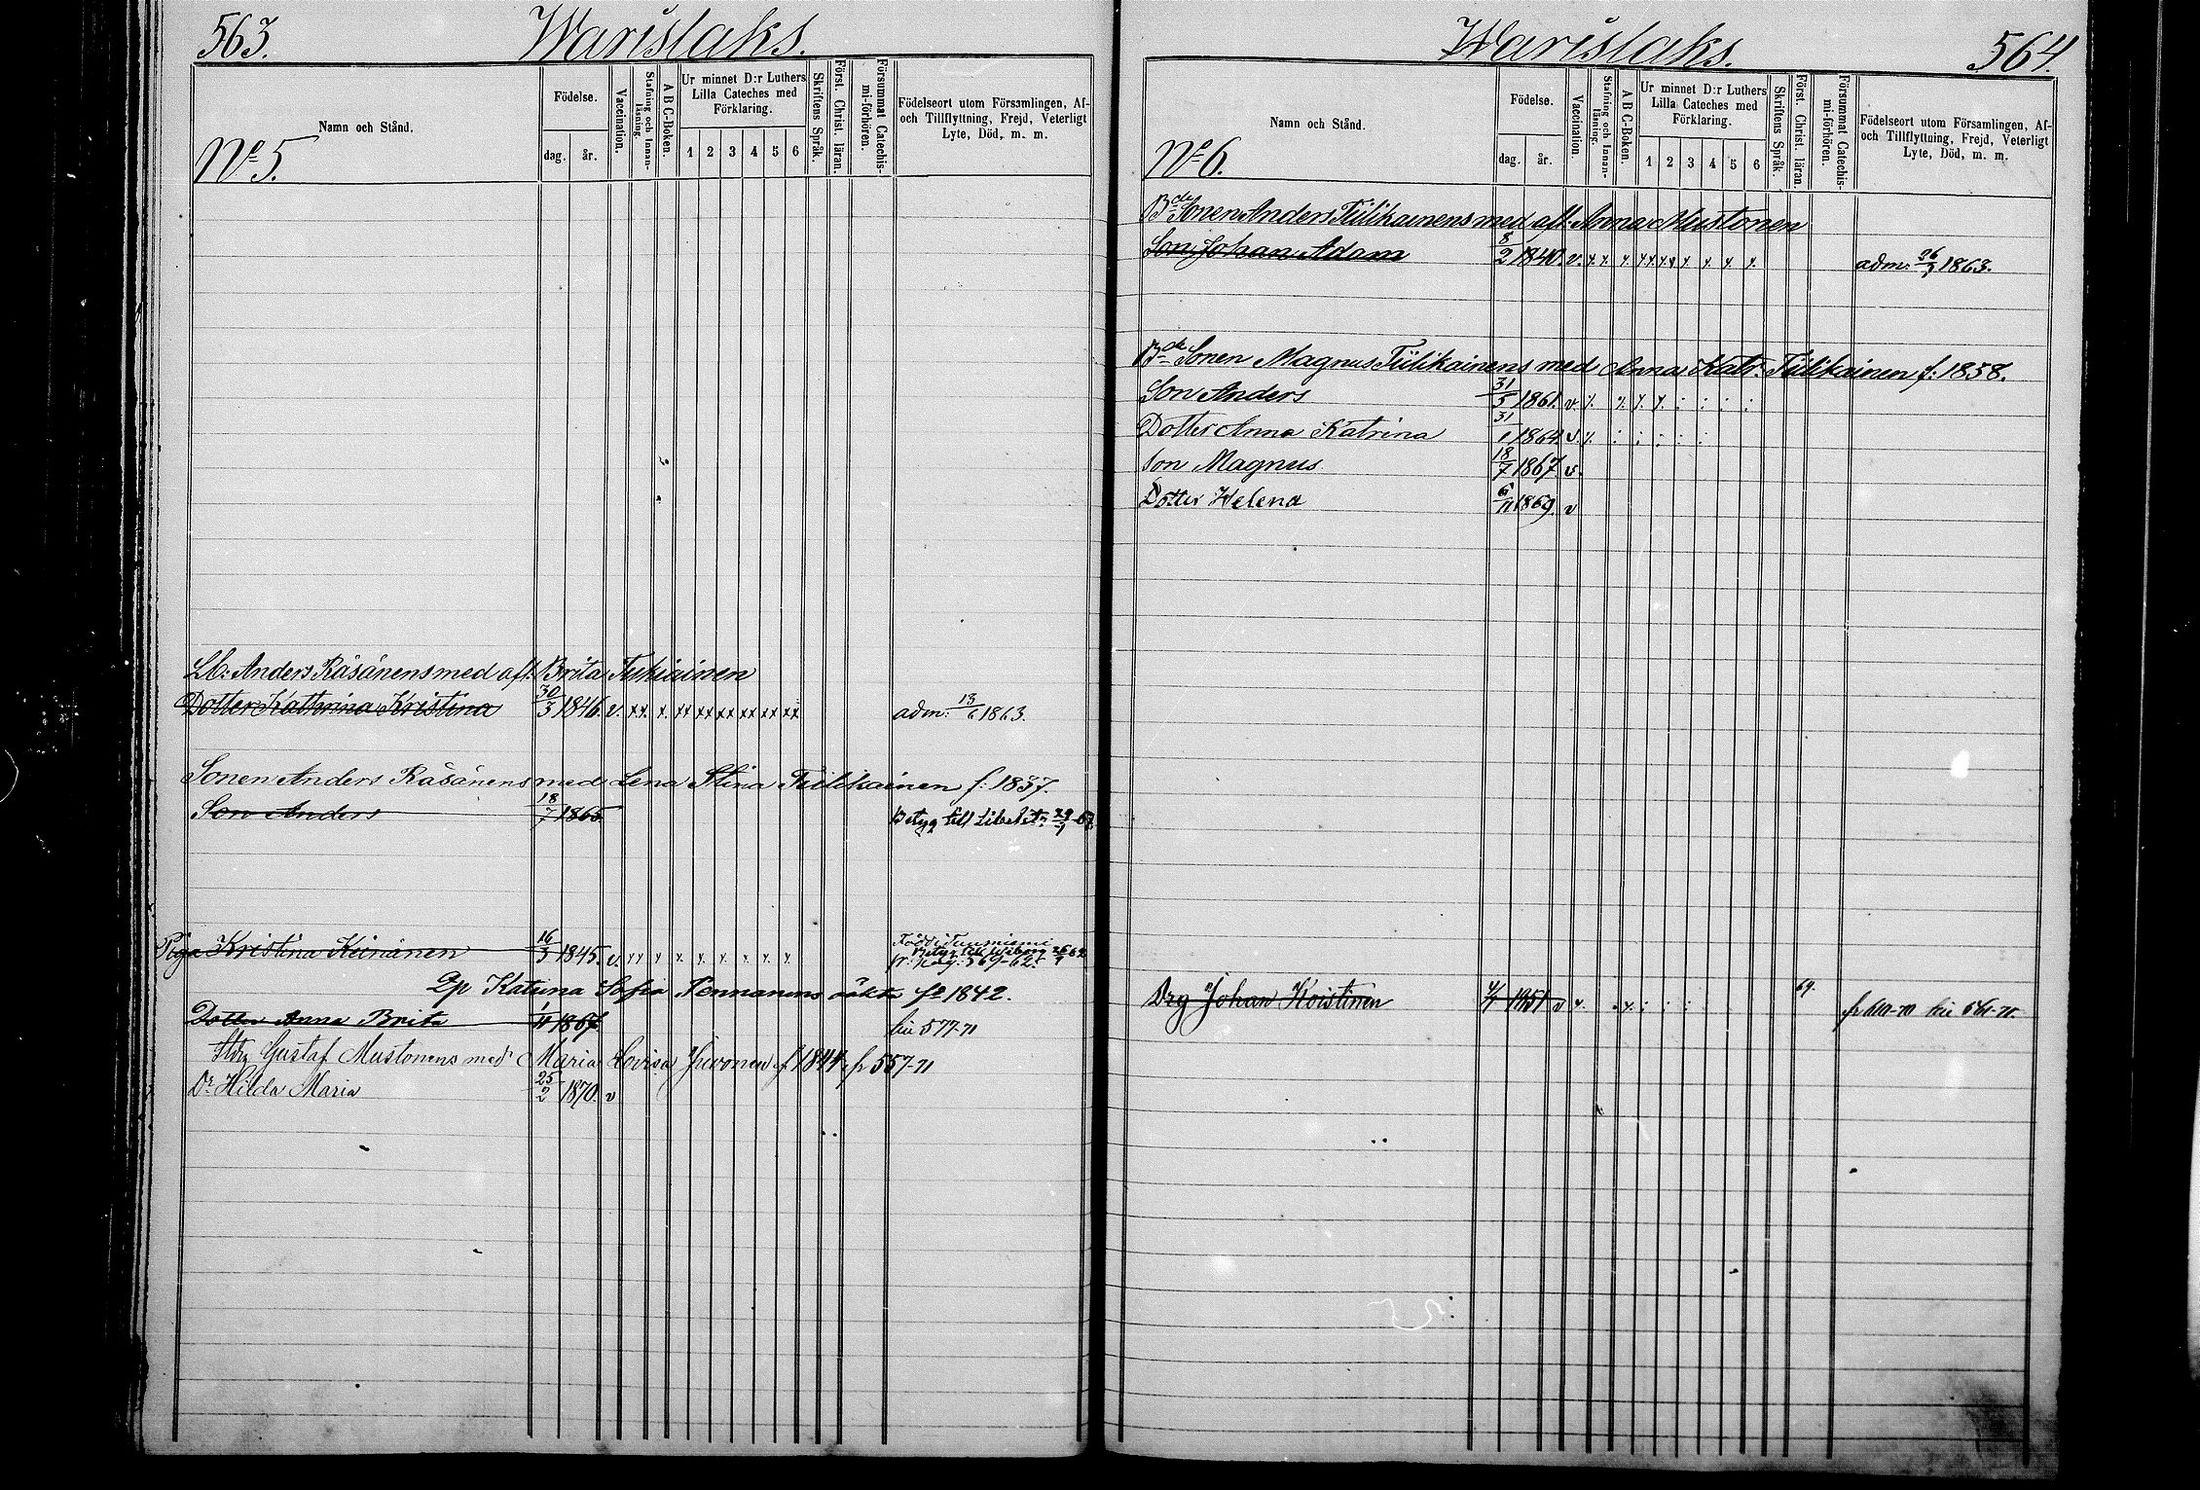 563. Warislaks.
Namn och Stånd.
Födelse.
dag. år.
Vaccination.
Stafning och Innan-läsning.
A B C-Boken.
Ur minnet D:r Luthers
Lilla Cateches med
Förklaring.
1 2 3 4 5 6
Skriftens Språk.
Först. Christ. läran.
Försummat Catechis-
mi-förhören.
Födelseort utom Församlingen, Af-
och Tillflyttning, Frejd, Veterligt
Lyte, Död, m. m.
No 5.
Lb: Anders Räsänens med afl: Brita Tukiainen
Dotter Kathrina Kristina 30/3 1846. v. xx. x. xx xx xx xx xx xx adm: 13/6 1863.
Sonen Anders Räsänens med Lena Stina Tiilikainen f: 1837.
Son Anders 18/7 1865 Betyg till Libelits
Piga Kristina Keinänen 16/3 1845. v. xx x x x x x x x Född i Tuusniemi
Betyg till Wiborg
fr: pag: 569-62.
Katrina Sofia Pennanens oäkta f. 1842.
Dotter Anna Brita 1867 577-71
Gustaf Mustonens med Maria Lovisa Hivonen f 1844 fr 557-71
Dr Hilda Maria 25/2 1870. v
Warislaks. 564.
Namn och Stånd.
Födelse.
dag. år.
Vaccination.
Stafning och Innan-läsning.
A B C-Boken.
Ur minnet D:r Luthers
Lilla Cateches med
Förklaring.
1 2 3 4 5 6
Skriftens Språk.
Först. Christ. läran.
Försummat Catechis-
mi-förhören.
Födelseort utom Församlingen, Af-
och Tillflyttning, Frejd, Veterligt
Lyte, Död, m. m.
No 6.
Bde Sonen Anders Tiilikainens med afl: Anna Mustonen
Son Johan Adam 8/2 1840. v. x x x xx xx x x x x. adm: 1863.
Bde Sonen Magnus Tiilikainens med Anna Katr. Tiilikainen f: 1838.
Son Anders 31/5 1861. v. x. x. x. x. : : : :
Dotter Anna Katrina 31/1 1864. v. x. : : : : :
Son Magnus 18/7 1867. v.
Dotter Helena 6/11 1869. v
Drg Johan Koistinen 1851 v x. x. : : : 69. fr 610-70